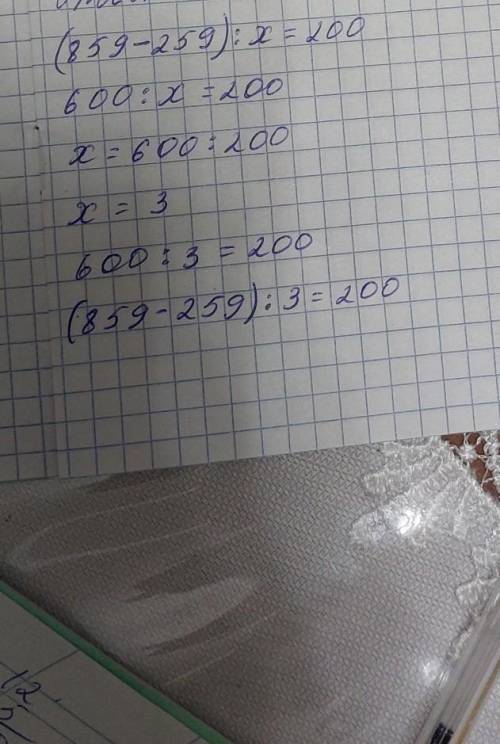 (859-259):x=200
600:x=200
x=600:200
x=3
600:3=200
(859-259):3=200
12